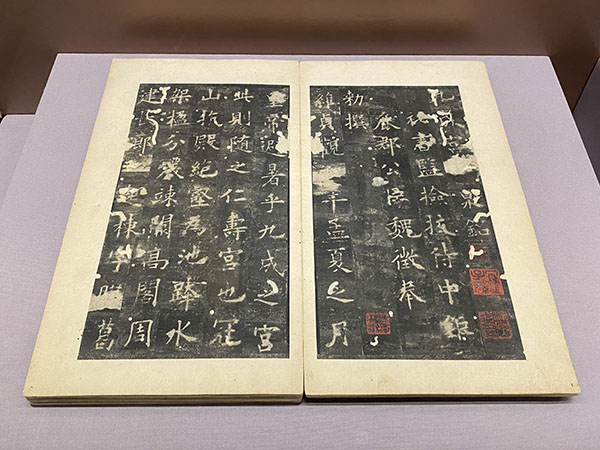 泉銘
秘書監檢挍侍中鉅
鹿郡公臣魏徵奉
勑撰
維貞觀年孟夏之月
皇帝避暑乎九成之宮
此則隨之仁壽宮也冠
山抗殿絕壑為池跨水
架楹分巖竦闕高閣周
建廊起棟宇膠葛